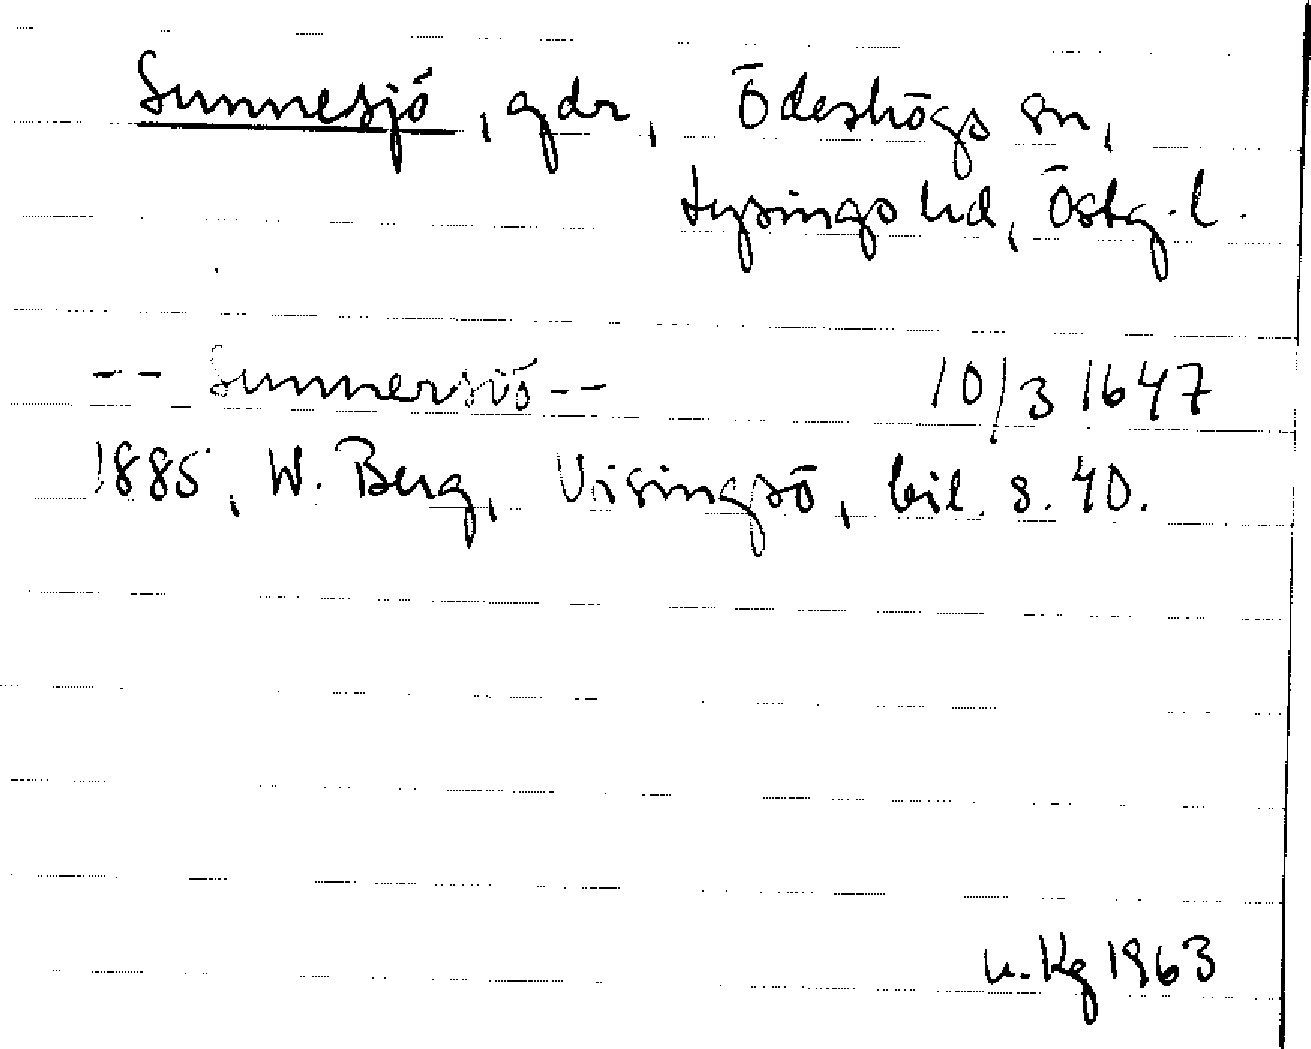 Sunnesjö, gdr, Ödeshögs sn,
Lysings hd, Östg. l.
-- Sunnersiö -- 10/3 1647
1885, W. Berg, Visingsö, bil. s. 40.
u. Kg 1963